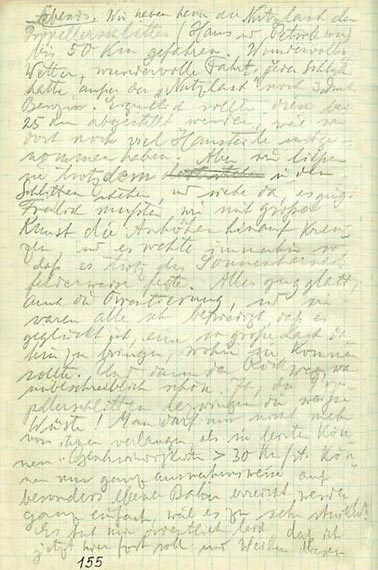 Abends. Wir haben heute die Nutzlast der
Propellerschlitten (Haus u Petroleum)
bis 50 km gefahren. Wundervolles
Wetter, wundervolle Fahrt, jeder Schlitten
hatte außer der Nutzlast noch 3
Benzin. Eigentlich sollte diese bei
25 km abgestellt werden, weil wir
dort noch viel
nommen haben. Aber wir ließen
sie trotzdem in den
Schlitten stehen, und siehe da, es ging.
Freilich mußten wir mit großer
Kunst die Anhöhen hinauf kreu-
zen und es wehte immerhin so
daß es trotz des Sonnenscheins
felderweise fegte. Alles ging glatt,
auch die Orientierung, und wir
waren alle sehr befriedigt daß es
geglückt ist, eine so große Last da-
hin zu bringen, wohin sie kommen
sollte. Und dann der Rückweg war
unbeschreiblich schön. Ja, die Pro-
pellerschlitten
Man darf nur nicht mehr
von ihnen verlangen als sie leisten kön-
nen. Geschwindigkeiten > 30 km/St. kön-
nen nur ganz ausnahmsweise auf
besonders ebener Bahn erreicht werden,
ganz einfach, weil es zu sehr
Es tut mir ordentlich leid daß ich
jetzt hier fort soll und Weiken diesen
155